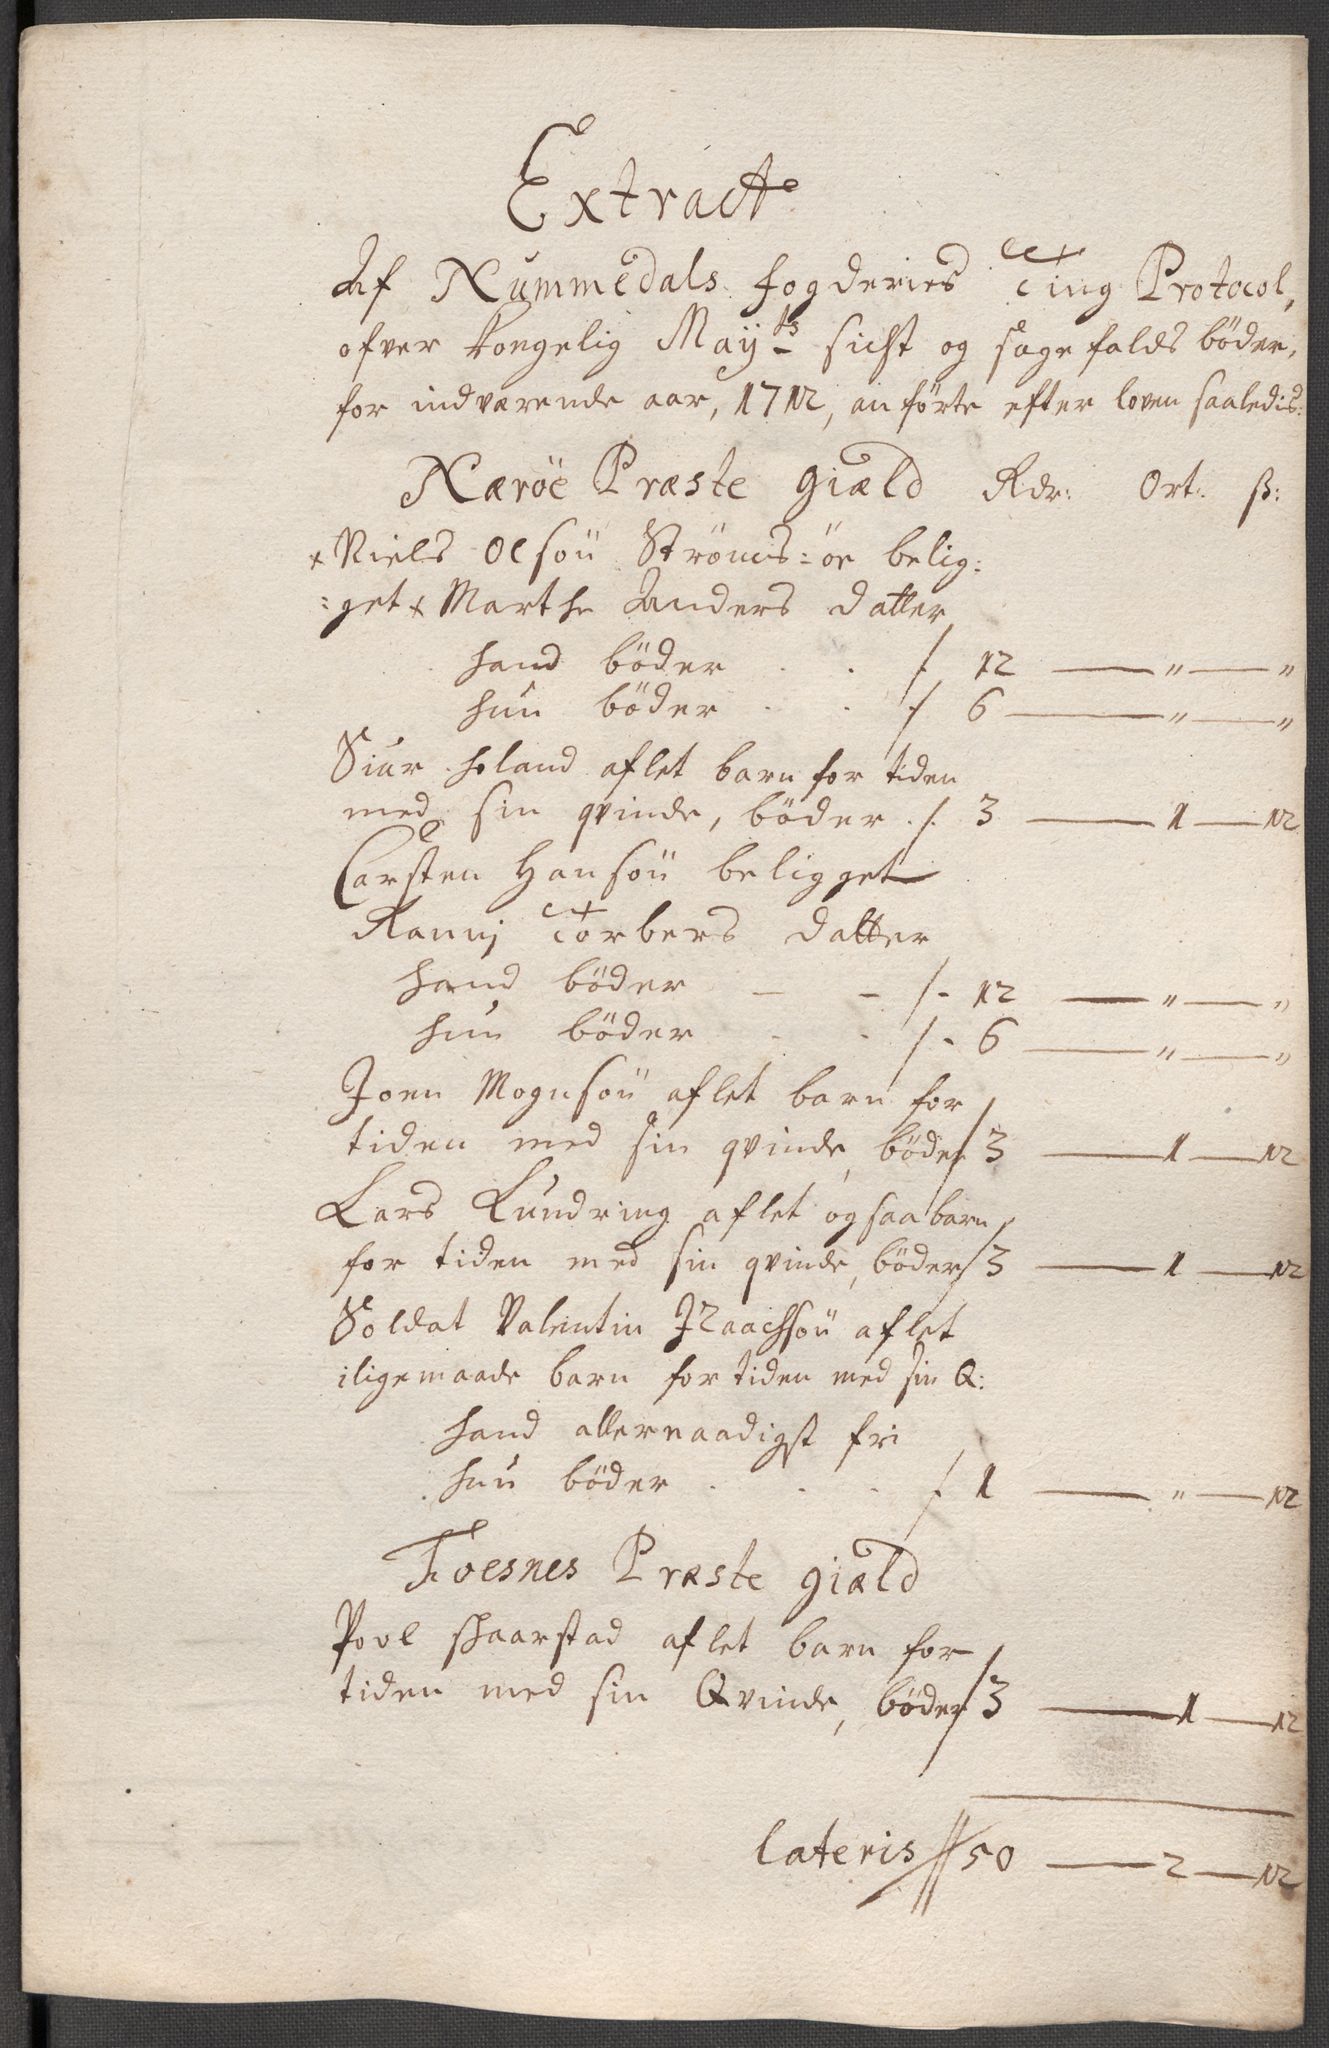 Extract
Af Nummedals fogderies Ting Protocol,
ofver kongelig Maÿts sicht og sagefalds böder,
for indværende aar, 1712, anförte efter loven saaledis:
Næröe Præste giæld Rdr: Ort: ß:
× Niels Olsön Ströms:öe belig:
:get × Marthe Anders datter
hand böder . . /. 12 — " — "
hun böder . . /. 6 — " — "
Siur Holand aflet barn for tiden
med sin qvinde, böder ./. 3 — 1 — 12
Carsten Hansön beligget
Rannj Torbers datter
hand böder — - /- 12 — " — "
hun böder . . /- 6 — " — "
Joen Mognsön aflet barn for
tiden med sin qvinde, böder / 3 — 1 — 12
Lars Lundring aflet ogsaa barn
for tiden med sin qvinde, böder / 3 — 1 — 12
Soldat Valentin Izaachsön aflet
iligemaade barn for tiden med sin Q:
hand allernaadigst fri
hun böder . . . /. 1 — " — 12
Foesnes Præste giæld
Povl Schaarstad aflet barn for
tiden med sin Qvinde, böder / 3 — 1 — 12
lateris // 50 — 2 — 12